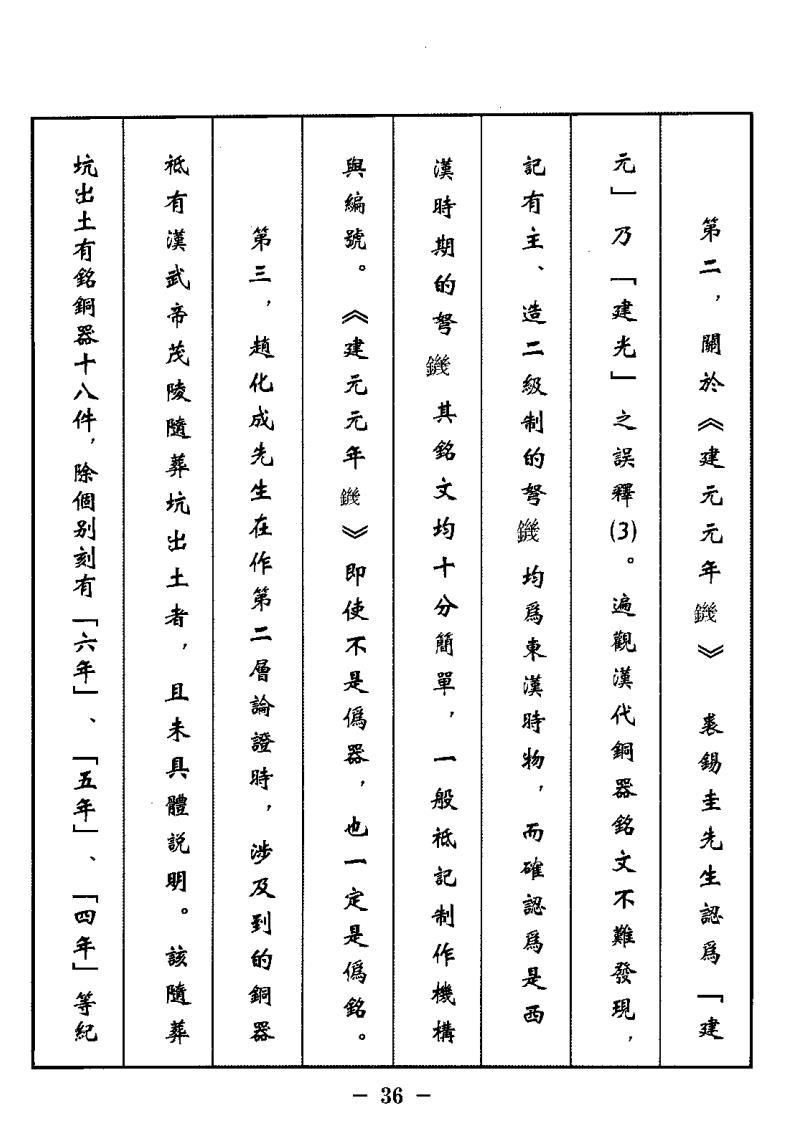 第二，關於《建元元年鐖》裘錫圭先生認爲「建
元」乃「建光」之誤釋(3)。遍觀漢代銅器銘文不難發現，
記有主、造二級制的弩鐖均爲東漢時物，而確認爲是西
漢時期的弩鐖其銘文均十分簡單，一般祗記制作機構
與編號。《建元元年鐖》即使不是僞器，也一定是僞銘。
第三，趙化成先生在作第二層論證時，涉及到的銅器
祗有漢武帝茂陵隨葬坑出土者，且未具體説明。該隨葬
坑出土有銘銅器十八件，除個别刻有「六年」、「五年」、「四年」等紀
— 36 —